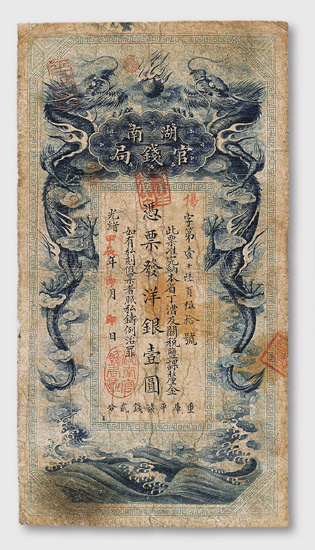 湖南
官錢局
字第壹千陸百伍拾號
此票準完納本省丁漕及關稅鹽課釐金
憑票發洋銀壹圓
如有私刻假票者照私鑄例治罪
光緒甲辰年月日
重庫平柒錢貳分